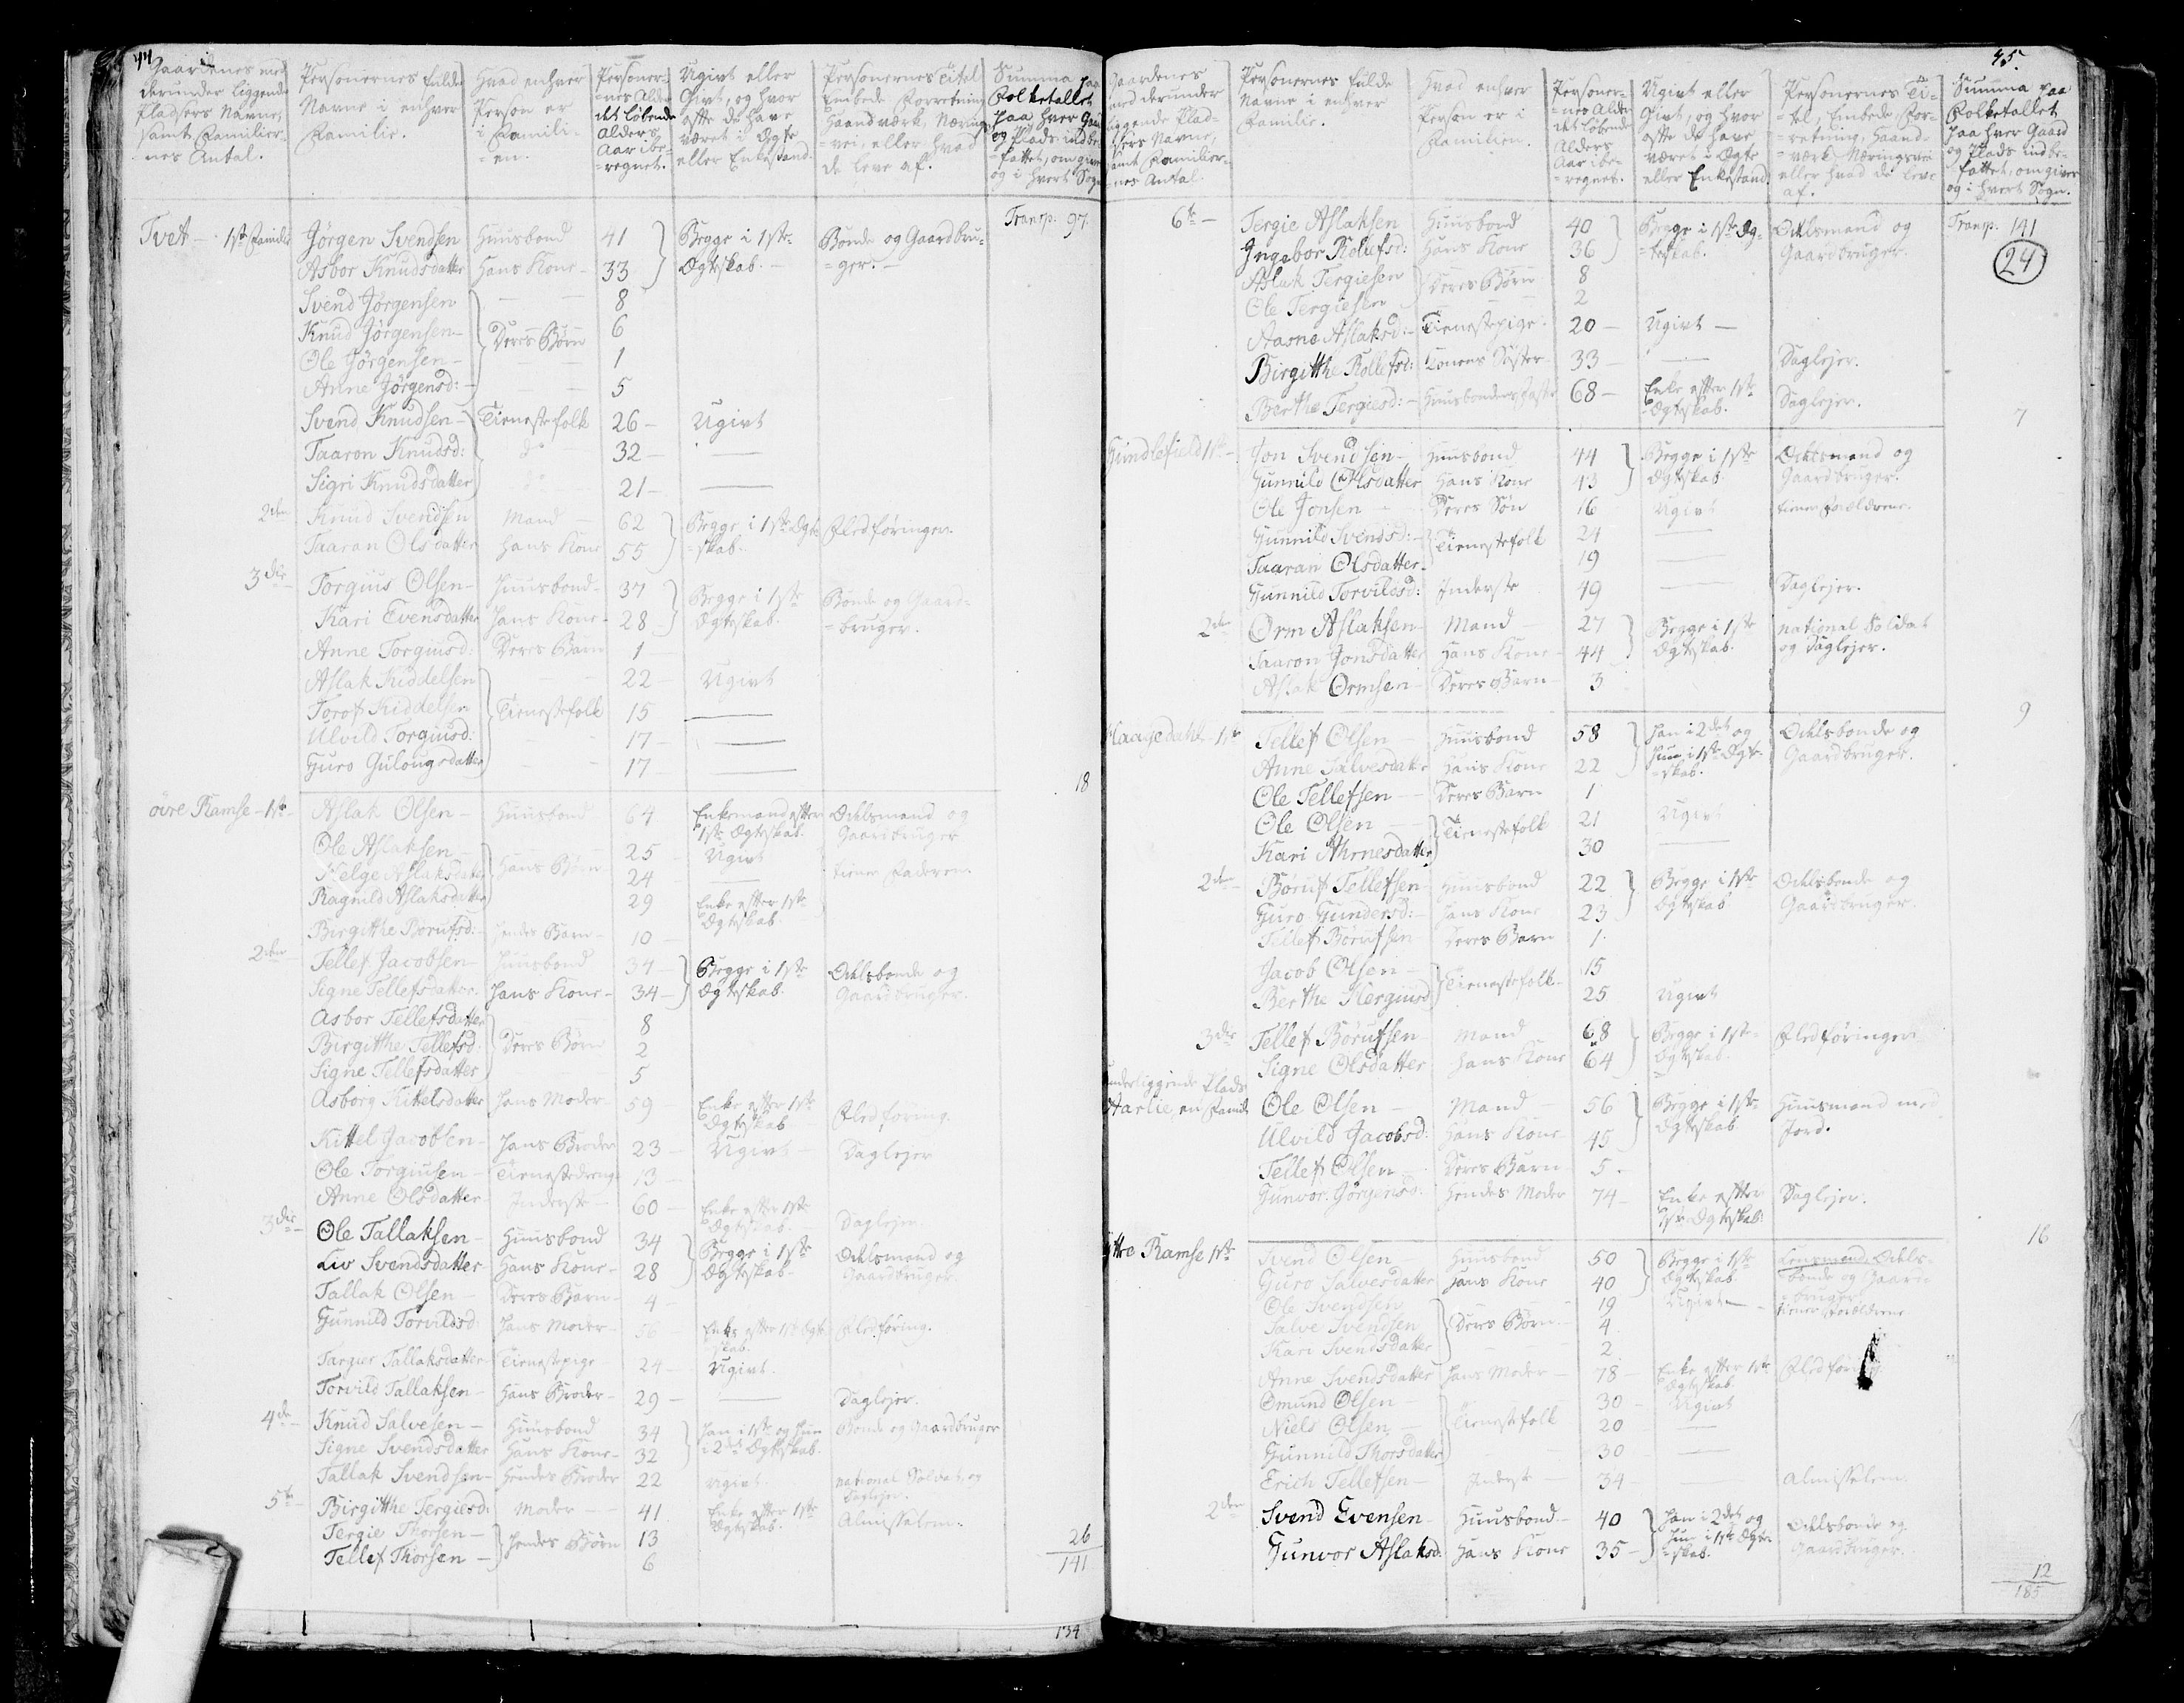 44
Gaardenes med
derunder liggende
Pladsers Navne,
samt Familier-
-nes Antal.
Personernes fulde
Navne i enhver
Familie.
Hvad enhver
Person er
i Famili-
-en.
Personer-
-nes Alder
det løbende
Alders
Aar ibe-
-regnet.
Ugivt eller
Givt, og hvor
ofte de have
været i Ægte
eller Enkestand.
Personernes Titel
Embede, Forretning
Haandværk, Nærings-
-vei, eller hvad
de leve af.
Summa paa
Folketallet
paa hver Gaard
og Plads indbe-
-fattet, omgivn
og i hvert Sogn
Transp: 97.
Tvet - 1ste Familie Jørgen Svendsen Huusbond 41 Begge i 1ste Bonde og Gaardbru-
Asbor Knudsdatter Hans Kone - 33 Ægteskab. - -ger. -
Svend Jørgensen 8
Knud Jørgensen - Deres Børn 6
Ole Jørgensen - 1
Anne Jørgensd: - 5
Svend Knudsen - Tienestefolk 26 - Ugivt
Taaron Knudsd: do 32 -
Sigri Knudsdatter do 21 -
2den Knud Svendsen Mand 62 Begge i 1ste Ægte- Fledføringer.
Taaran Olsdatter Hans Kone 55 -skab.
3die Torgius Olsen - Huusbond - 37 Begge i 1ste Bonde og Gaard-
Kari Evensdatter Hans Kone - 28 Ægteskab. -bruger.
Anne Torgiusd: Deres Barn 1
Aslak Kiddelsen 22 - Ugivt
Torof Kiddelsen Tienestefolk 15
Ulvild Torgiusd: 17 -
Guro Gulougsdatter 17
18
øvre Ramse - 1ste Aslak Olsen - Huusbond 64 Enkemand efter Odelsmand og
1ste Ægteskab. Gaardbruger
Ole Aslaksen - Hans Børn 25 Ugivt tiener Faderen
Helge Aslaksdatter 24
Ragnild Aslaksdatter 29 Enke efter 1ste
Ægteskab
Birgithe Borufsd: - Hendes Barn - 10
2den Tellef Jacobsen - Huusbond 34 - Begge i 1ste Odelsbonde og
Signe Tellefsdatter Hans Kone - 34 - Ægteskab. Gaardbruger.
Asbor Tellefsdatter 8
Birgitthe Tellefsd: Deres Børn 2
Signe Tellefsdatter 5
Asborg Kittelsdatter Hans Moder 59 - Enke efter 1ste Fledføring.
Ægteskab
Kittel Jacobsen - Hans Broder 23 - Ugivt - Daglejer
Ole Torgiusen - Tienestedreng 13 -
Anne Olsdatter - Inderste - 60 - Enke efter 1ste
Ægteskab. Daglejer.
3die Ole Tallaksen - Huusbond 34 Begge i 1ste Odelsmand og
Liv Svendsdatter Hans Kone - 28 Ægteskab. Gaardbruger.
Tallak Olsen - Deres Barn - 4 -
Gunnild Torvildsd: Hans Moder - 56 - Enke efter 1ste Ægte Fledføring.
-skab.
Targier Tallaksdatter Tienestepige 24 - Ugivt.
Torvild Tallaksen - Hans Broder - 29 - Daglejer.
4de Knud Salvesen - Huusbond 34 Han i 1ste og Hun Bonde og Gaardbruger
Signe Svendsdatter Hans Kone - 32 i 2det Ægteskab.
Tallak Svendsen - Hendes Broder 22 Ugivt. national Soldat, og
Daglejer.
5te Birgitthe Tergiesd: Moder - 41 Enke efter 1ste Almisselem.
Tergie Thorsen - Hendes Børn 13 Ægteskab.
Tellef Thorsen - 6
26
141
134
45.
Gaardenes
med derunder
liggende Plad-
-sers Navne,
samt Familier-
-nes Antal.
Personernes fulde
Navne i enhver
Familie.
Hvad enhver
Person er i
Familien.
Personer-
-nes Alder
det løbende
Alders
Aar ibe-
-regnet.
Ugivt eller
Givt, og hvor
ofte de have
været i Ægte
eller Enkestand.
Personernes Ti-
-tel, Embede, For-
-retning, Haand-
-værk, Næringsvei
eller hvad de leve
af.
Summa paa
Folketallet
paa hver Gaard
og Plads indbe-
-fattet, omgiven
og i hvert Sogn.
6te - Tergie Aslaksen Huusbond 40 Begge i 1ste Æg- Odelsmand og Transp: 141
Ingebor Rollefsd: Hans Kone 36 -teskab. Gaardbruger. 24
Aslak Tergiesen Deres Børn 8
Ole Tergiesen 2
Aasne Aslaksd: - Tienestepige. 20 - Ugivt -
Birgitthe Rollefsd: Konens Søster - 33 - Daglejer.
Berthe Tergiesd: - Huusbondens Faster 68 - Enke efter 1ste Daglejer.
Ægteskab.
7
Gundlefield 1ste Jon Svendsen - Huusbond 44 Begge i 1ste Odelsmand og
Gunnild Olsdatter Hans Kone 43 Ægteskab. Gaardbruger.
Ole Jonsen - Deres Søn 16 Ugivt tiener Forældrene.
Gunnild Svendsd: - Tienestefolk 24
Taaran Olsdatter - 19
Gunnild Torvildsd: Inderste 49 Daglejer.
2den Orm Aslaksen - Mand - 27 Begge i 1ste national Soldat
Taaron Jonsdatter Hans Kone - 44 Ægteskab. og Daglejer.
Aslak Ormsen - Deres Barn 3
9
Haagedahl - 1ste Tellef Olsen - Huusbond 58 Han i 2det og Odelsbonde og
Anne Salvesdatter Hans Kone 22 Hun i 1ste Ægte- Gaardbruger.
-skab.
Ole Tellefsen - Deres Barn 1
Ole Olsen - Tienestefolk 21 Ugivt
Kari Ahrnesdatter 30
2den Børuf Tellefsen - Huusbond 22 Begge i 1ste Odelsbonde og
Guro Gundersd: - Hans Kone 23 Ægteskab Gaardbruger.
Tellef Børufsen - Deres Barn 1.
Jacob Olsen - Tienestefolk - 15
Berthe Hergiusd: 25 Ugivt
3die Tellef Børufsen - Mand 68 Begge i 1ste - Fledføringer.
Signe Olsdatter Hans Kone 64 Ægteskab.
underliggende Plads
Aarlie, en Familie Ole Olsen - Mand 56 Begge i 1ste Huusmand med
Ulvild Jacobsd: Hans Kone 45 Ægteskab Jord.
Tellef Olsen - Deres Barn 5 -
Gunvor Jørgensd: Hendes Moder 74 - Enke efter Daglejer.
1ste Ægteskab.
16
Ytre Ramse 1ste Svend Olsen - Huusbond 50 Begge i 1ste Leensmand, Odels-
Guro Salvesdatter Hans Kone 40 Ægteskab -bonde og Gaard-
-bruger.
Ole Svendsen 19 Ugivt - tiener Forældrene
Salve Svendsen Deres Børn - 4
Kari Svendsdatter 2
Anne Svendsdatter Hans Moder - 78 - Enke efter 1ste
Ægteskab
Omund Olsen - 30 - Ugivt
Niels Olsen, - Tienestefolk 20 -
Gunnild Thorsdatter 30 -
Erich Tellefsen - Inderst 34 - Almisselem.
2den Svend Evensen - Huusbond - 40 Han i 2det og Odelsbonde og
Gunvor Aslaksd: Hans Kone 35 - Hun i 1ste Ægte- Gaardbruger.
-skab.
12
185